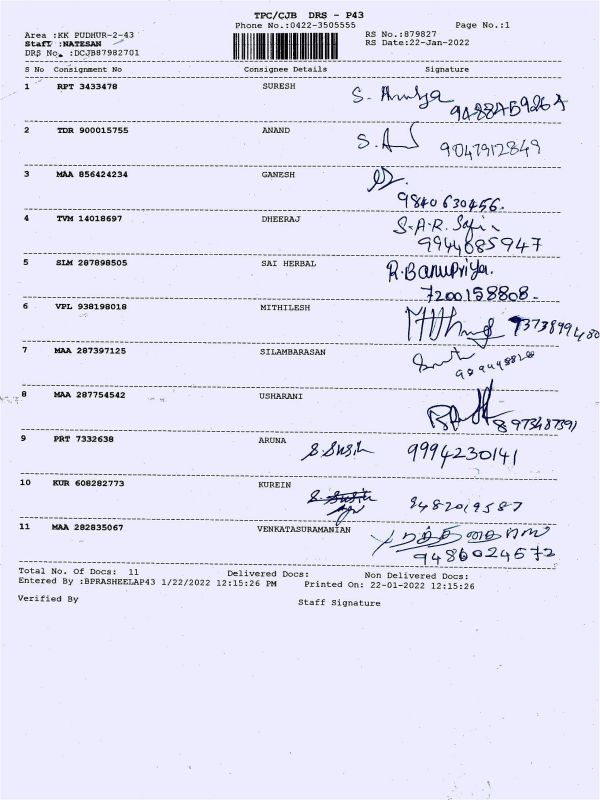 TPC/CJB DRS - P43
Phone No.:0422-3505555 Page No.:1
Area :KK PUDHUR-2-43 RS No.:879827
Staff :NATESAN RS Date:22-Jan-2022
DRS No. :DCJB87982701
S No Consignment No Consignee Details Signature
1 RPT 3433478 SURESH S.
2 TDR 900015755 ANAND S.
9047912849
3 MAA 856424234 GANESH
9840630456.
4 TVM 14018697 DHEERAJ S.A.R.
9944685947
5 SLM 287898505 SAI HERBAL R.Banupriya.
7200158808.
6 VPL 938198018 MITHILESH
7 MAA 287397125 SILAMBARASAN
8 MAA 287754542 USHARANI
9 PRT 7332638 ARUNA 9994230141
10 KUR 608282773 KUREIN 9482019587
11 MAA 282835067 VENKATASURAMANIAN
9486024572
Total No. Of Docs: 11 Delivered Docs: Non Delivered Docs:
Entered By :BPRASHEELAP43 1/22/2022 12:15:26 PM Printed On: 22-01-2022 12:15:26
Verified By Staff Signature